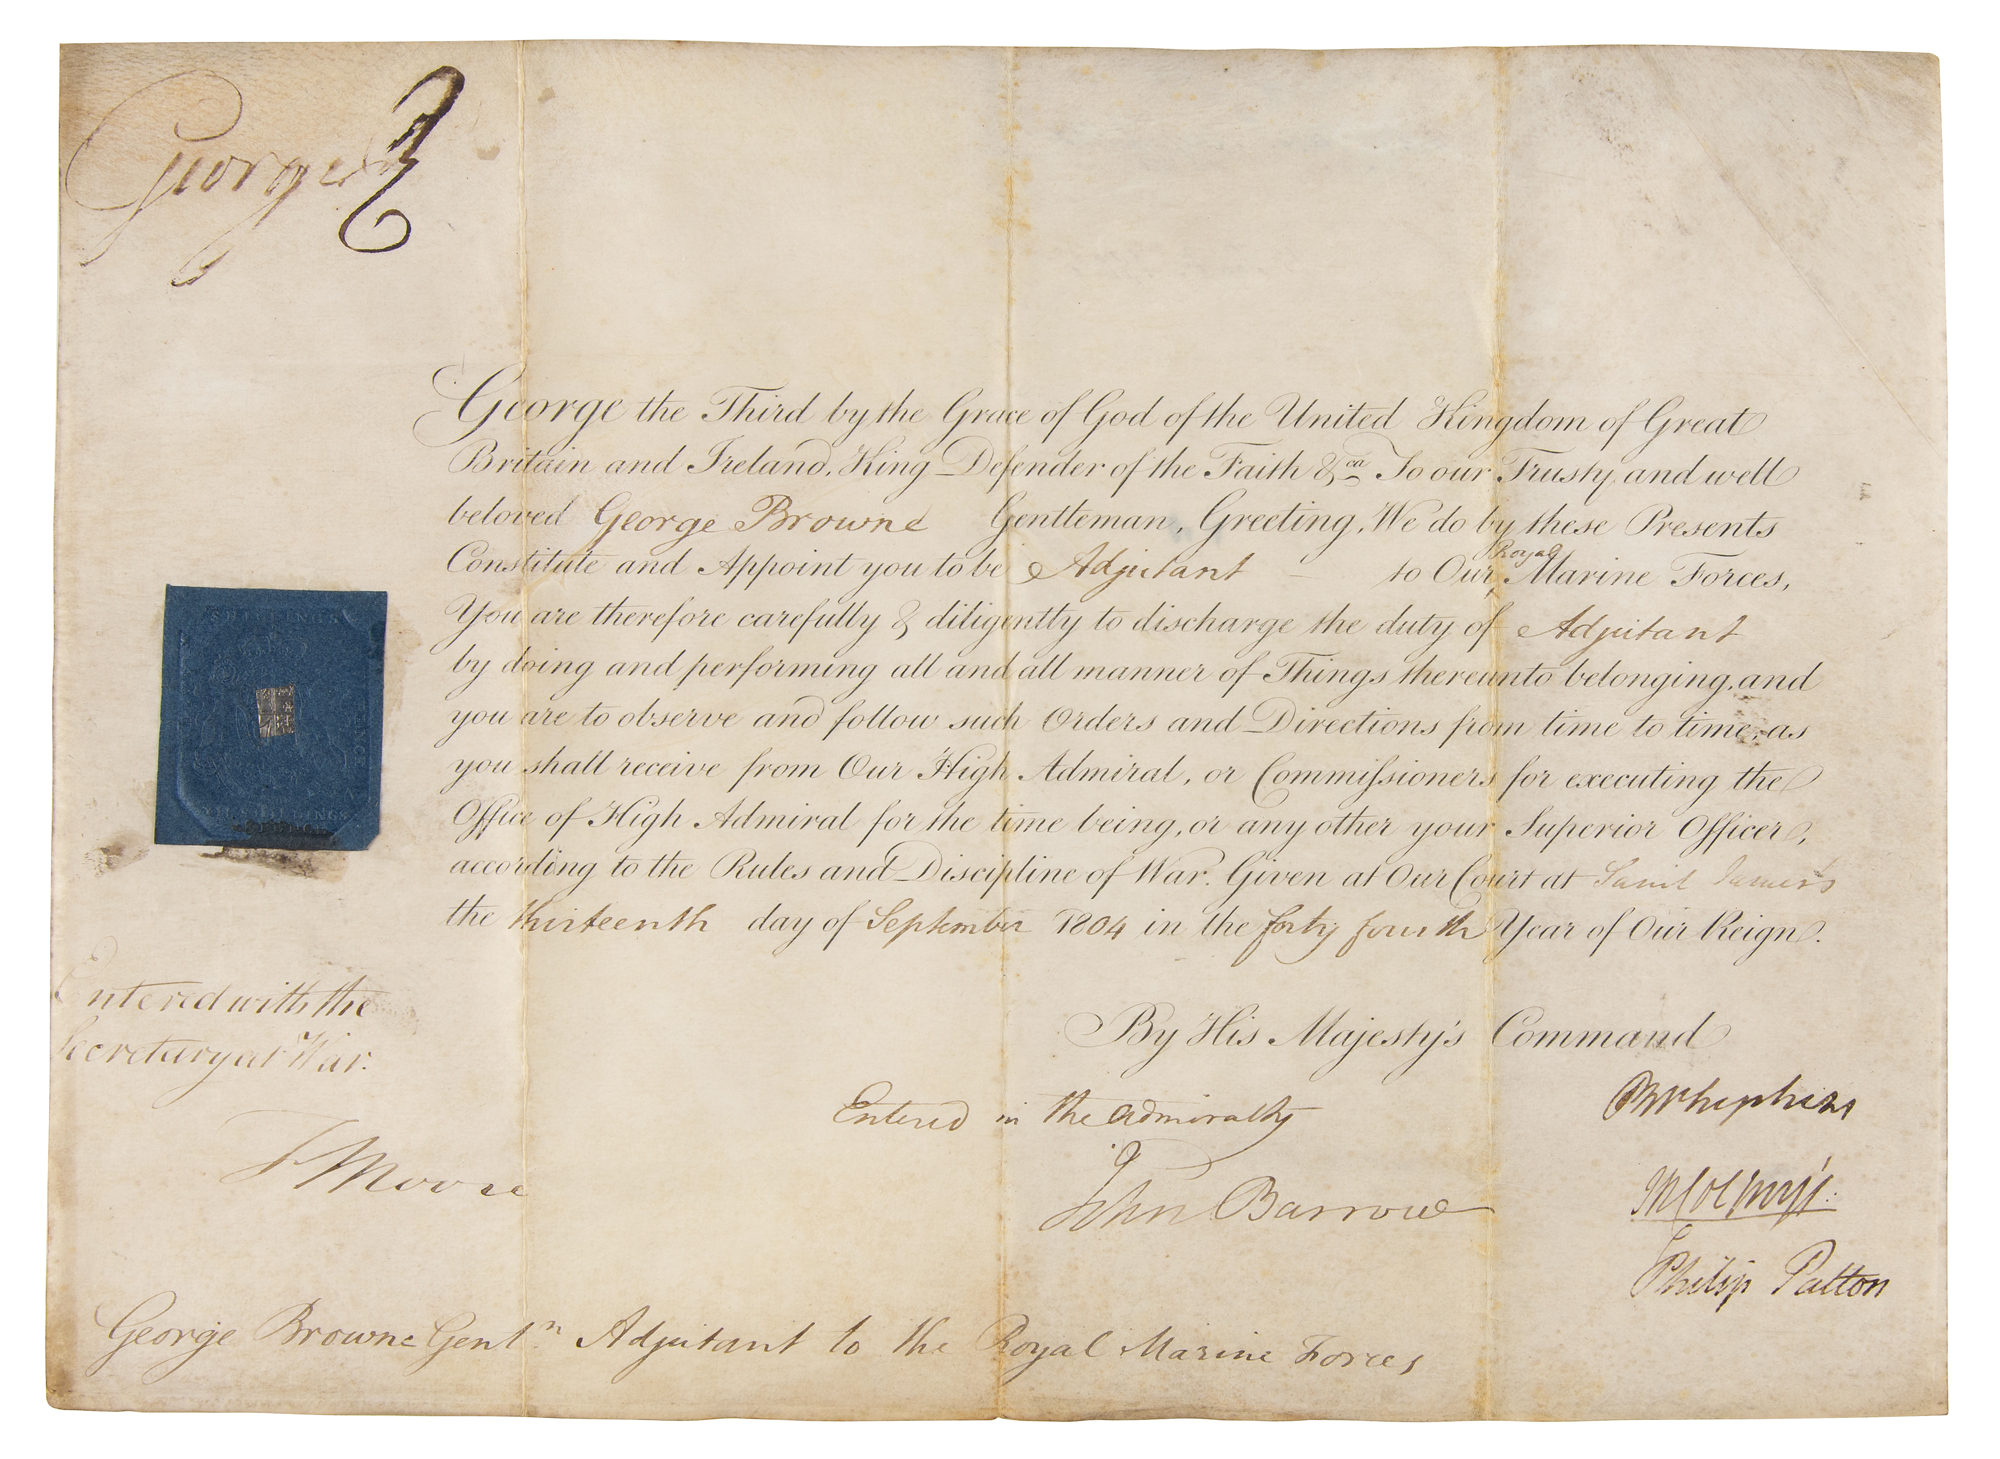 George R
George the Third by the Grace of God of the United Kingdom of Great
Britain and Ireland, King Defender of the Faith &ca To our Trusty and well
beloved George Browne Gentleman, Greeting, We do by these Presents
Constitute and Appoint you to be Adjutant – to Our ^Royal Marine Forces,
You are therefore carefully & diligently to discharge the duty of Adjutant
by doing and performing all and all manner of Things thereunto belonging, and
you are to observe and follow such Orders and Directions from time to time, as
you shall receive from Our High Admiral, or Commissioners for executing the
Office of High Admiral for the time being, or any other your Superior Officer,
according to the Rules and Discipline of War. Given at Our Court at Saint James's
the thirteenth day of September 1804 in the forty fourth Year of Our Reign.
SHILLINGS
Entered with the
Secretary at War.
F Moore
By His Majesty's Command
Entered in the Admiralty
John Barrow
Philip Patton
George Browne Gentn. Adjutant to the Royal Marine Forces